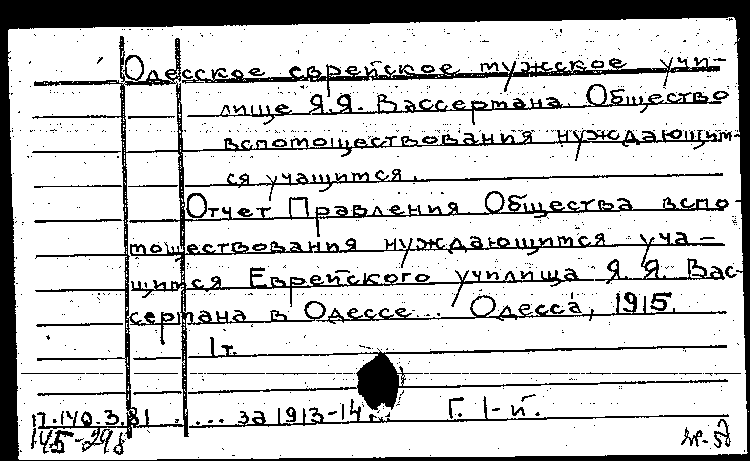 Одесское еврейское мужское учи-
лище Я.Я. Вассермана. Общество
вспомоществования нуждающим-
ся учащимся.
Отчет Правления Общества вспо-
моществования нуждающимся уча-
щимся Еврейского училища Я. Я. Вас-
сермана в Одессе... Одесса, 1915.
1 т.
П.140.3.81 ..... за 1913-14... Г. 1-й.
145-298